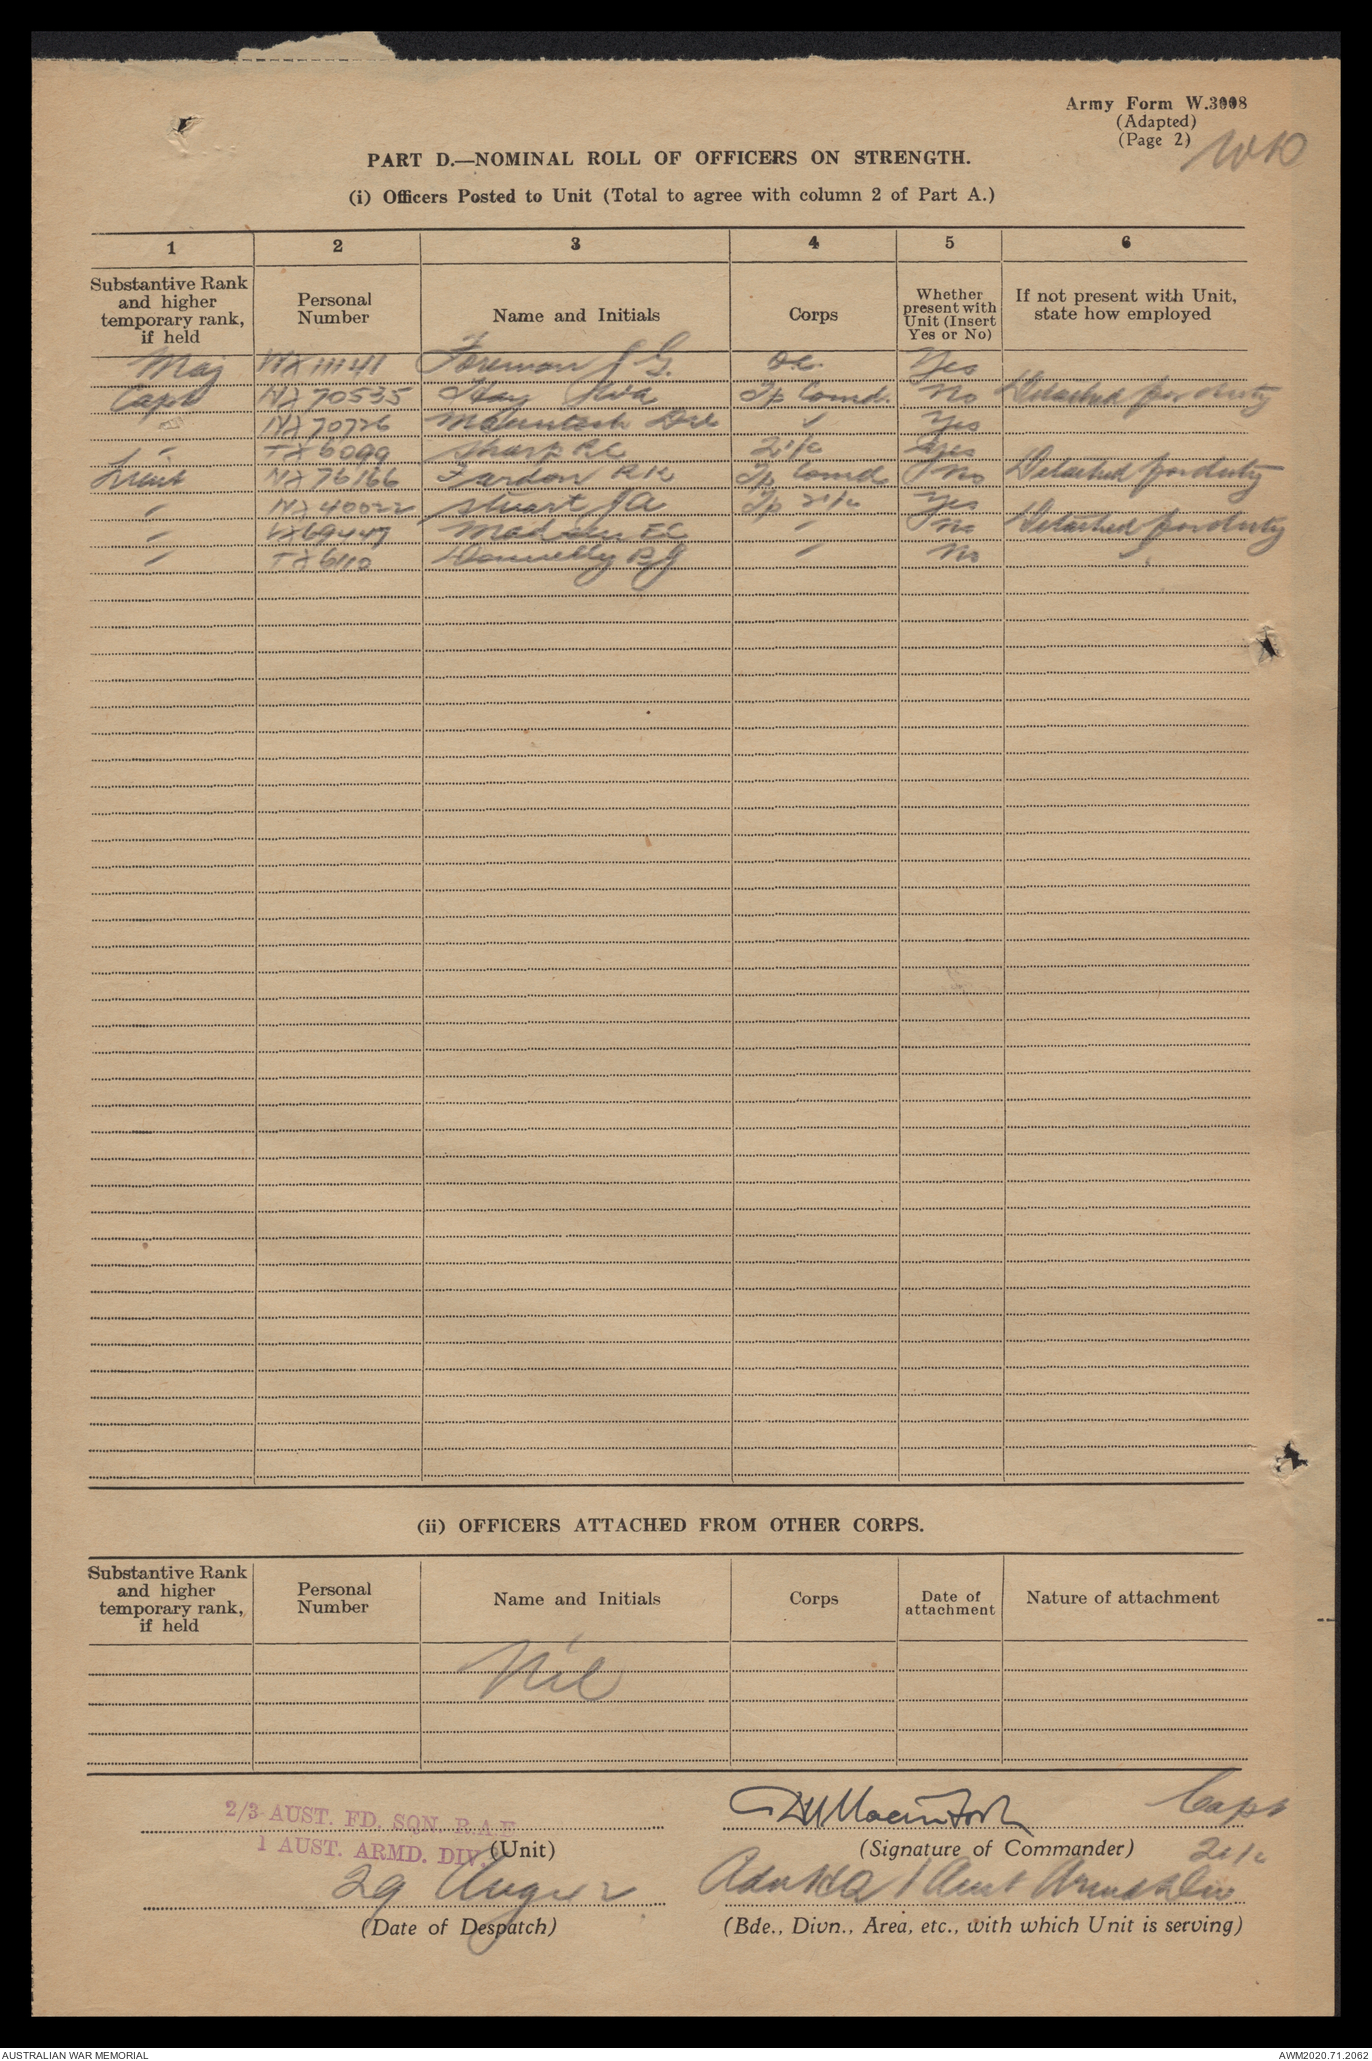 Army Form W.3008
(Adapted)
(Page 2)
W10
PART D.—NOMINAL ROLL OF OFFICERS ON STRENGTH.
(i) Officers Posted to Unit (Total to agree with column 2 of Part A.)
1 2 3 4 5 6
Substantive Rank and higher temporary rank, if held
Personal Number
Name and Initials
Corps
Whether present with Unit (Insert Yes or No)
If not present with Unit, state how employed
Maj WX11141 Foreman J G. OC. Yes
Capt NX70535 Hay Tp Comd. No Detached for duty
NX70726 Macintosh " Yes
" TX6099 Sharp RC 2i/c Yes
Lieut NX76166 Fardon RK Tp Comd No Detached for duty
" NX40022 Stuart JA Tp 2i/c Yes
" VX69447 Madsen EC " No Detached for duty
" TX6110 Donnelly BJ " No "
(ii) OFFICERS ATTACHED FROM OTHER CORPS.
Substantive Rank and higher temporary rank, if held
Personal Number
Name and Initials
Corps
Date of attachment
Nature of attachment
Nil
2/3 AUST. FD. SQN. R.A.E.
1 AUST. ARMD. DIV.
(Unit)
Macintosh Capt
(Signature of Commander) 2i/c
29 Aug
(Date of Despatch)
Adv HQ 1 Aust Armd Div
(Bde., Divn., Area, etc., with which Unit is serving)
AUSTRALIAN WAR MEMORIAL
AWM2020.71.2062